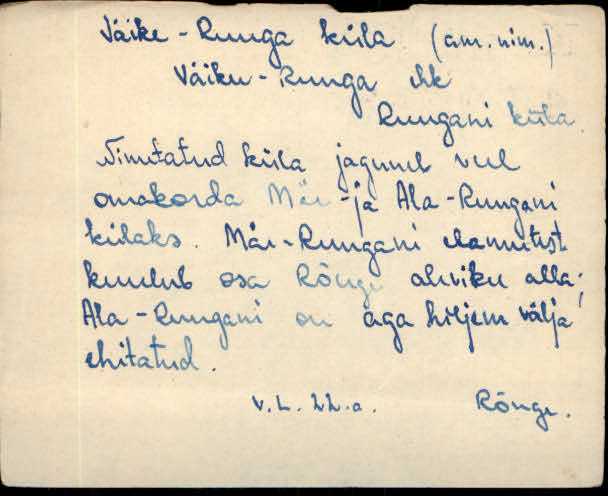 Väike-Ruuga küla (am. nim.)
Väiku-Ruuga ehk
Ruugani küla
Nimetatud küla jaguneb veel
omakorda Mäe- ja Ala-Ruugani
külaks. Mäe-Ruugani elamutest
kuulub osa Rõuge aleviku alla;
Ala-Ruugani on aga hiljem välja
ehitatud.
V. L. 22.a. Rõuge.